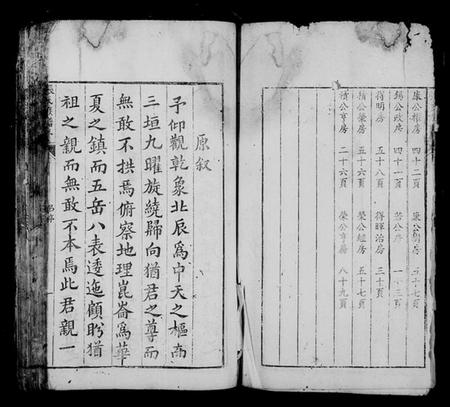 康公權房 四十二頁
錫公政房 四十一頁
将明房 五十八頁
積公榮房 五十六頁
積公亨房 二十六頁
康公 房 五十七頁
若公房
得輝治房 三十頁
榮公經房 五十七頁
榮公亨房 八十九頁
原叙
予仰觀乾象北辰爲中天之樞而
三垣九曜旋繞歸向猶君之尊而
無敢不拱焉俯察地理崑崙爲華
夏之鎮而五岳八表逶迤顧盻猶
祖之親而無敢不本焉此君親一